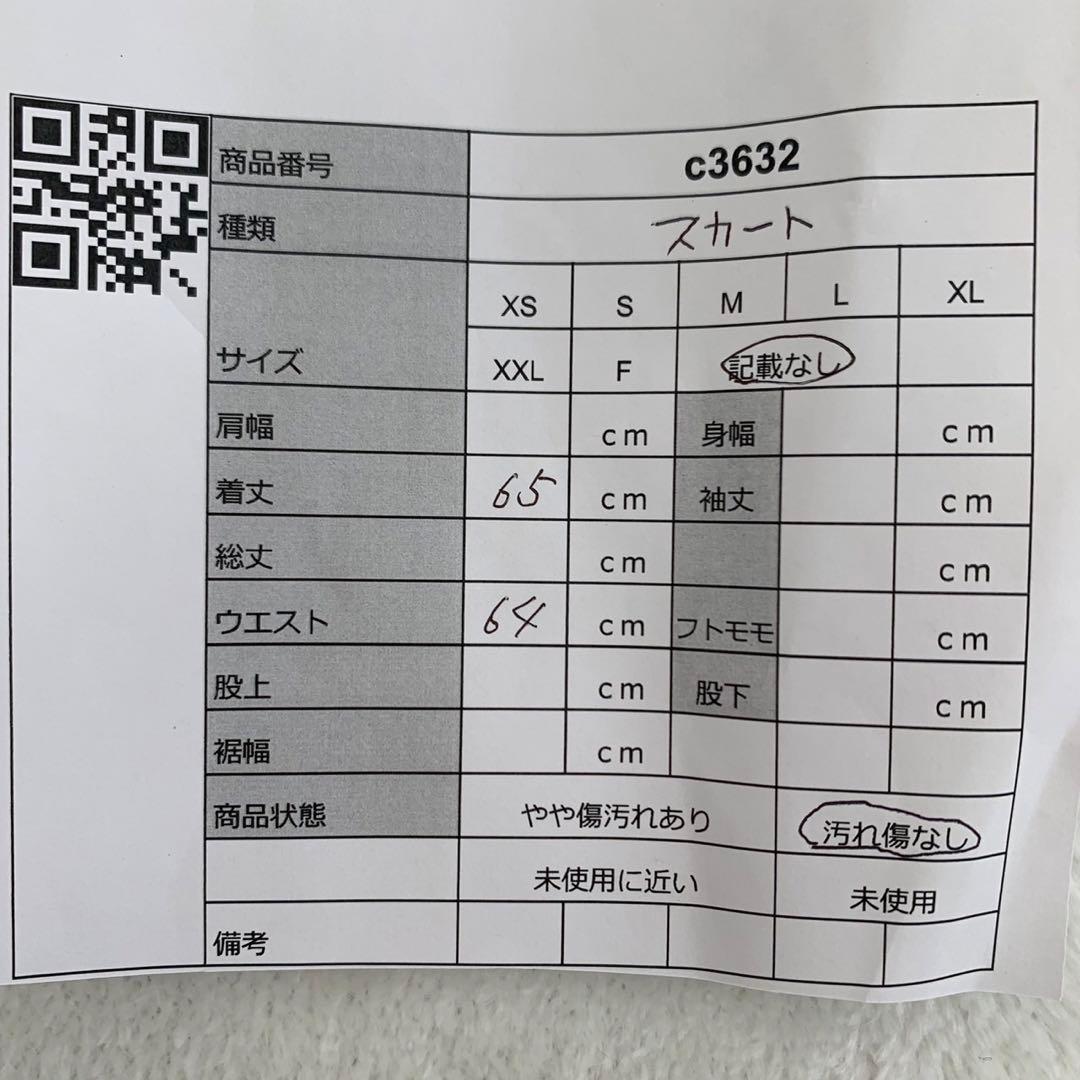 商品番号 c3632
種類 スカート
XS S M L XL
サイズ XXL F 記載なし
肩幅 cm 身幅 cm
着丈 65 cm 袖丈 cm
総丈 cm cm
ウエスト 64 cm フトモモ cm
股上 cm 股下 cm
裾幅 cm
商品状態 やや傷汚れあり 汚れ傷なし
未使用に近い 未使用
備考